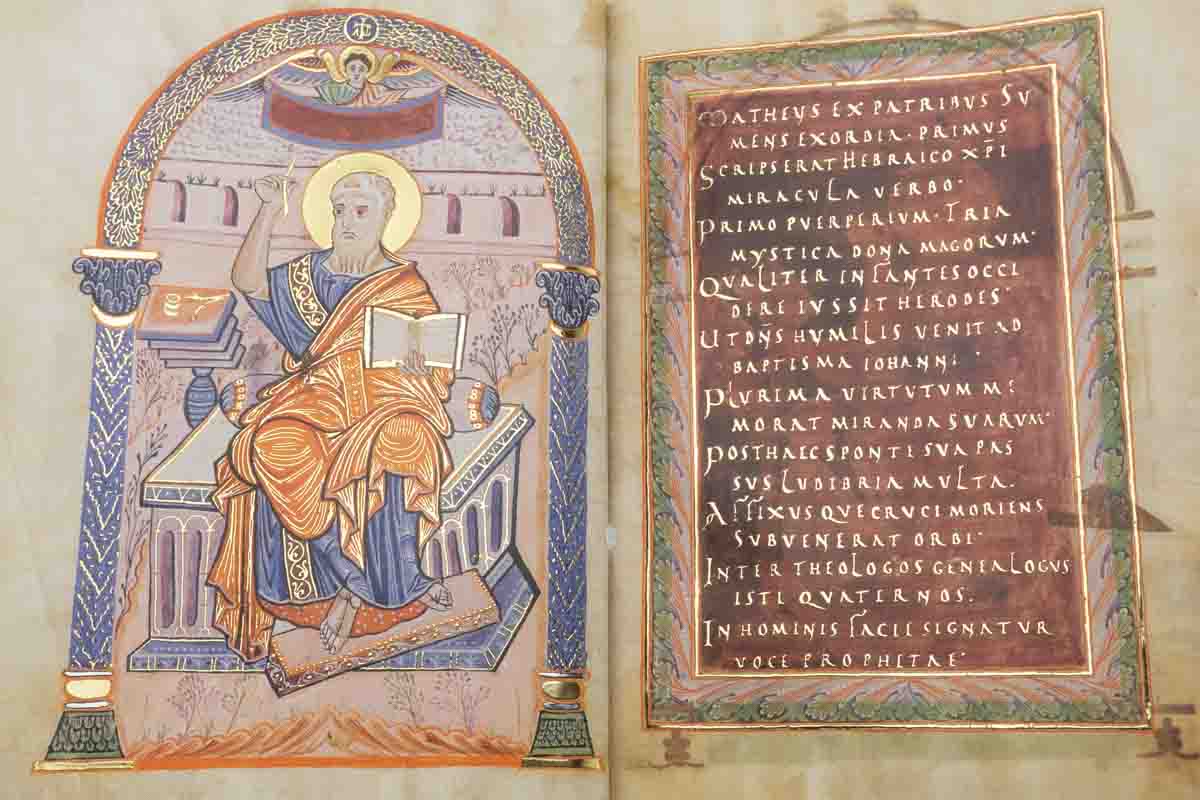 MATHEUS EX PATRIBUS SU
MENS EXORDIA · PRIMUS
SCRIPSERAT HEBRAICO XP̄I
MIRACULA VERBO ·
PRIMO PUERPERIUM · TRIA
MYSTICA DONA MAGORUM ·
QUALITER INFANTES OCCI
DERE IUSSIT HERODES ·
UT DN̄S HUMILIS VENIT AD
BAPTISMA IOHANNI ·
PLURIMA VIRTUTUM ME
MORAT MIRANDA SUARUM ·
POST HAEC SPONTE SUA PAS
SUS LUDIBRIA MULTA .
AFFIXUS QUE CRUCI MORIENS
SUBVENERAT ORBI ·
INTER THEOLOGOS GENEALOGUS
ISTE QUATERNOS .
IN HOMINIS FACIE SIGNATUR
VOCE PROPHETAE ·